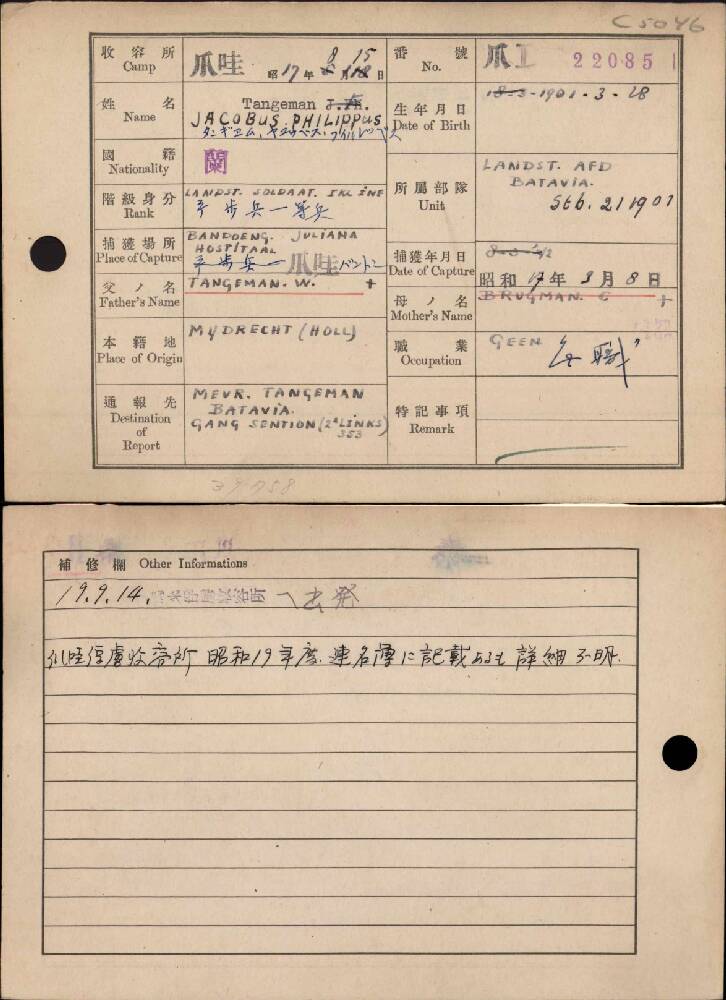 C5046
收容所 Camp 爪哇 昭17年 8月15日
番號 No. 爪I 22085
姓名 Name Tangeman J.
JACOBUS PHILIPPUS
生年月日 Date of Birth 18-3-1901-3-28
國籍 Nationality 蘭
階級身分 Rank LANDST. SOLDAAT. INF
歩兵一等兵
所屬部隊 Unit LANDST. AFD
BATAVIA.
Stb. 21 1901
捕獲場所 Place of Capture BANDOENG. JULIANA
HOSPITAAL
歩兵一 爪哇 バンドン
捕獲年月日 Date of Capture 昭和17年3月8日
父ノ名 Father's Name TANGEMAN. W. +
母ノ名 Mother's Name BRUGMAN. C +
本籍地 Place of Origin MYDRECHT (HOLL)
職業 Occupation GEEN 職
通報先 Destination of Report MEVR. TANGEMAN
BATAVIA.
GANG SENTION (2e LINKS)
353
特記事項 Remark
補修欄 Other Informations
19.9.14. 容所 へ出発
爪哇俘虜收容所 昭和19年度連名簿に記載あるも詳細不明.